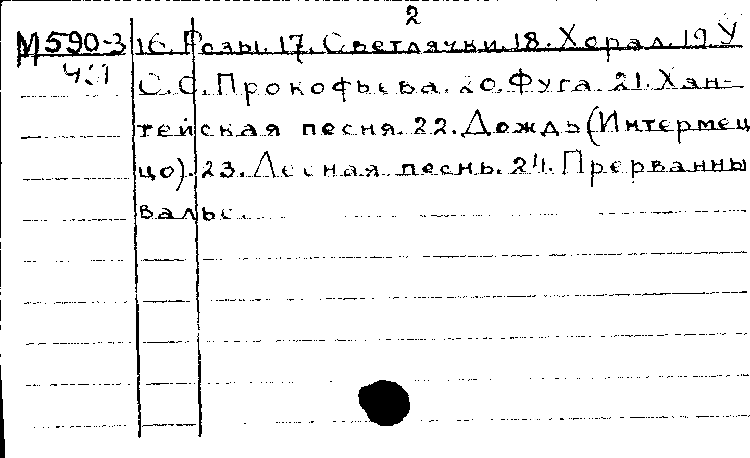 2
М590-3 16. Розы. 17. Светлячки. 18. Хорал. 19. У
Ч:1 С. С. Прокофьева. 20. Фуга. 21. Хан-
тейская песня. 22. Дождь (Интермец
цо). 23. Лесная песнь. 24. Прерванны
вальс.